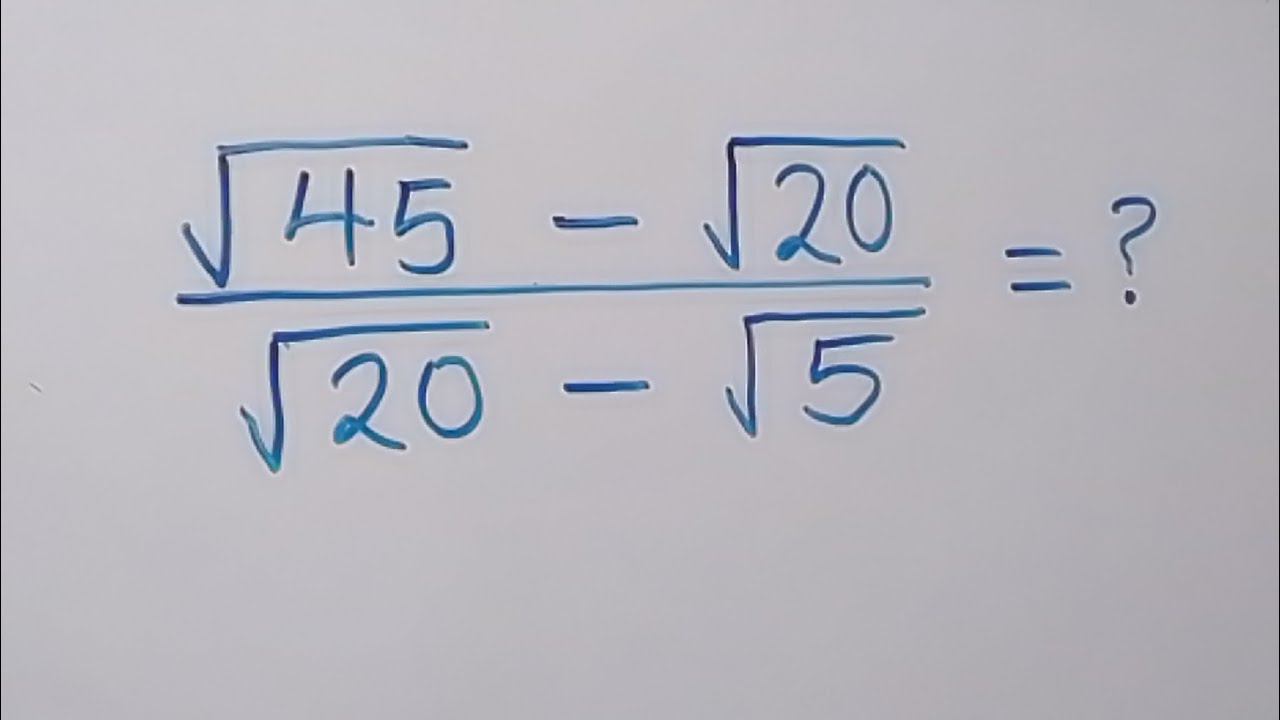 √45 − √20
√20 − √5
= ?